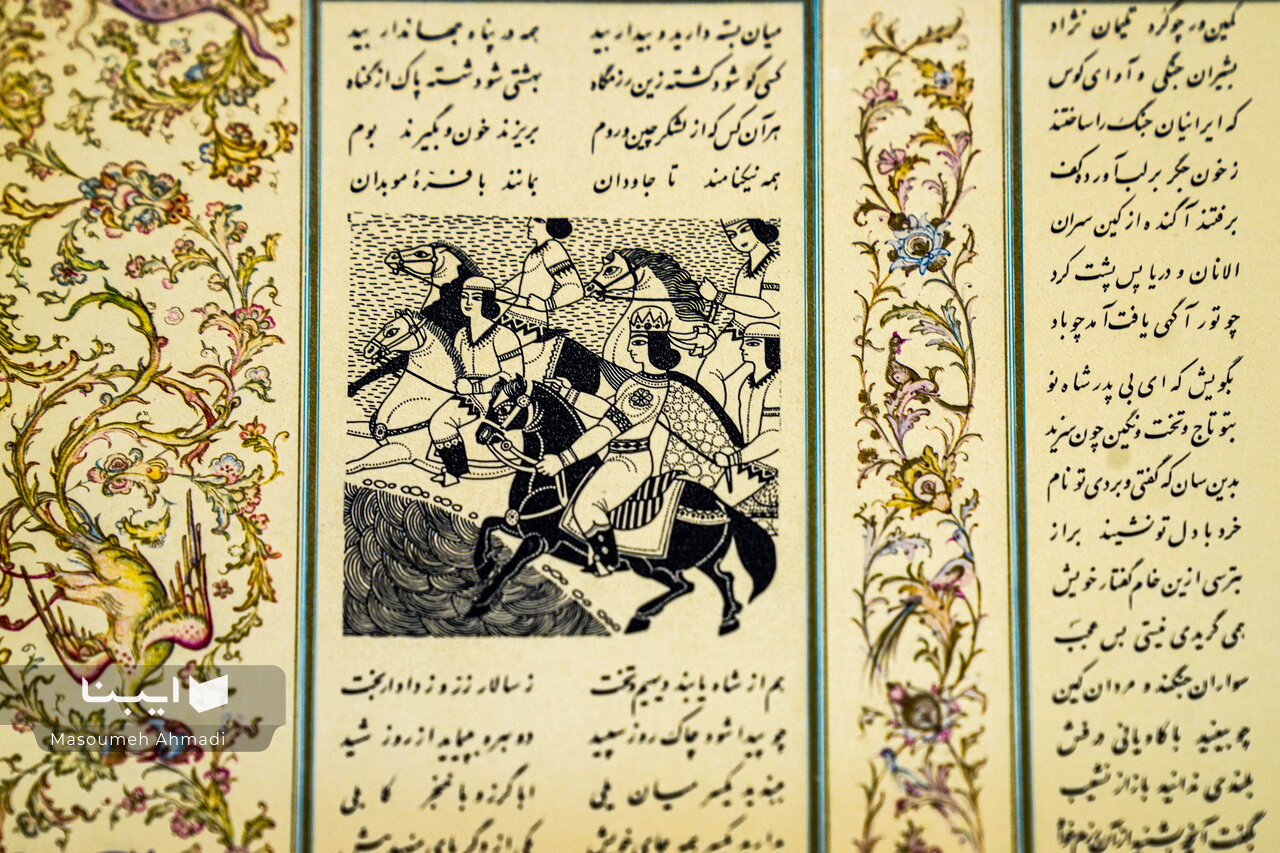 کمین‌ور چو گرد تلیمان نژاد
بشیران جنگی و آوای کوس
که ایرانیان جنگ را ساختند
ز خون جگر بر لب آورده کف
برفتند آگنده از کین سران
الانان و دریا پس پشت کرد
چو تور آگهی یافت آمد چو باد
بگویش که ای بی پدر شاه نو
بتو تاج و تخت و نگین چون سزید
بدین سان که گفتی و بردی تو نام
خرد با دل تو نشیند براز
بترسی ازین خام گفتار خویش
همی گریدی نیستی بس عجب
سواران جنگند و مردان کین
چو بینید با کاویانی درفش
بلندی ندانید باز از نشیب
میان بسته دارید و بیدار بید همه در پناه جهاندار بید
کسی کو شود کشته زین رزمگاه بهشتی شود شسته پاک از گناه
هر آن کس که از لشکر چین و روم بریزند خون و بگیرند بوم
همه نیکنامند تا جاودان بمانند با فرّهٔ موبدان
هم از شاه یابند دیهیم و تخت ز سالار زر و ز دادار بخت
چو پیدا شود چاک روز سپید دو بهره بپیماید از روز شید
ببندید یکسر میان یلی ابا گرز و با خنجر کابلی
بدارید یکسر همه جای خویش یکی از دگر پای منهید پیش
ایبنا
Masoumeh Ahmadi